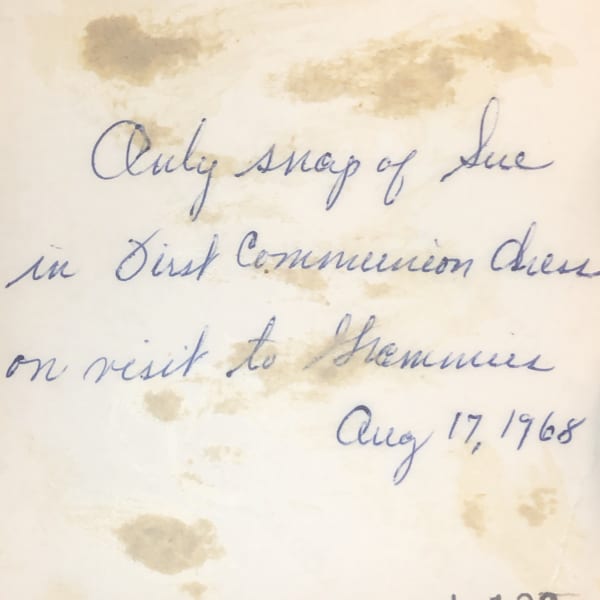 Only snap of Sue
in First Communion dress
on visit to Grammies
Aug 17, 1968